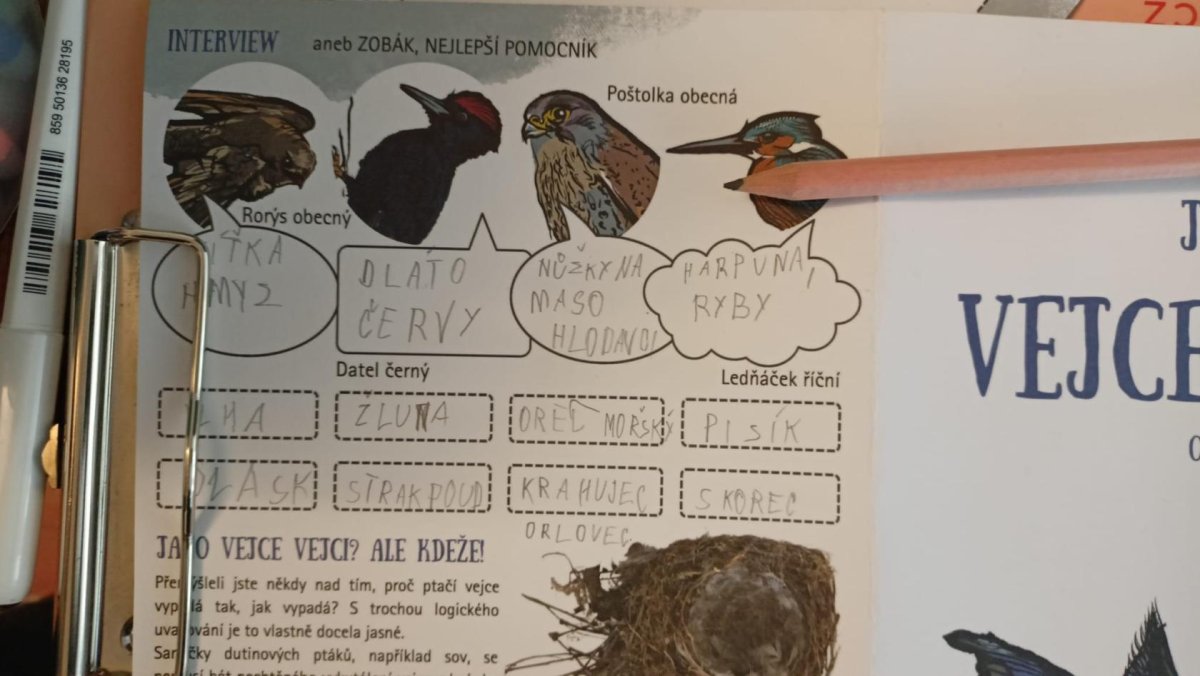 859 50136 28195
INTERVIEW aneb ZOBÁK, NEJLEPŠÍ POMOCNÍK
Poštolka obecná
Rorýs obecný
HMYZ
DLÁTO
ČERVY
NŮŽKY NA
MASO
HLODAVCI
HARPUNA,
RYBY
Datel černý
Ledňáček říční
ŽLUNA
OREL MOŘSKÝ
PISÍK
DLASK
STRAKPOUD
KRAHUJEC
SKOREC
ORLOVEC
JAKO VEJCE VEJCI? ALE KDEŽE!
Přemýšleli jste někdy nad tím, proč ptačí vejce
vypadá tak, jak vypadá? S trochou logického
uvažování je to vlastně docela jasné.
Samičky dutinových ptáků, například sov, se
J
VEJCE